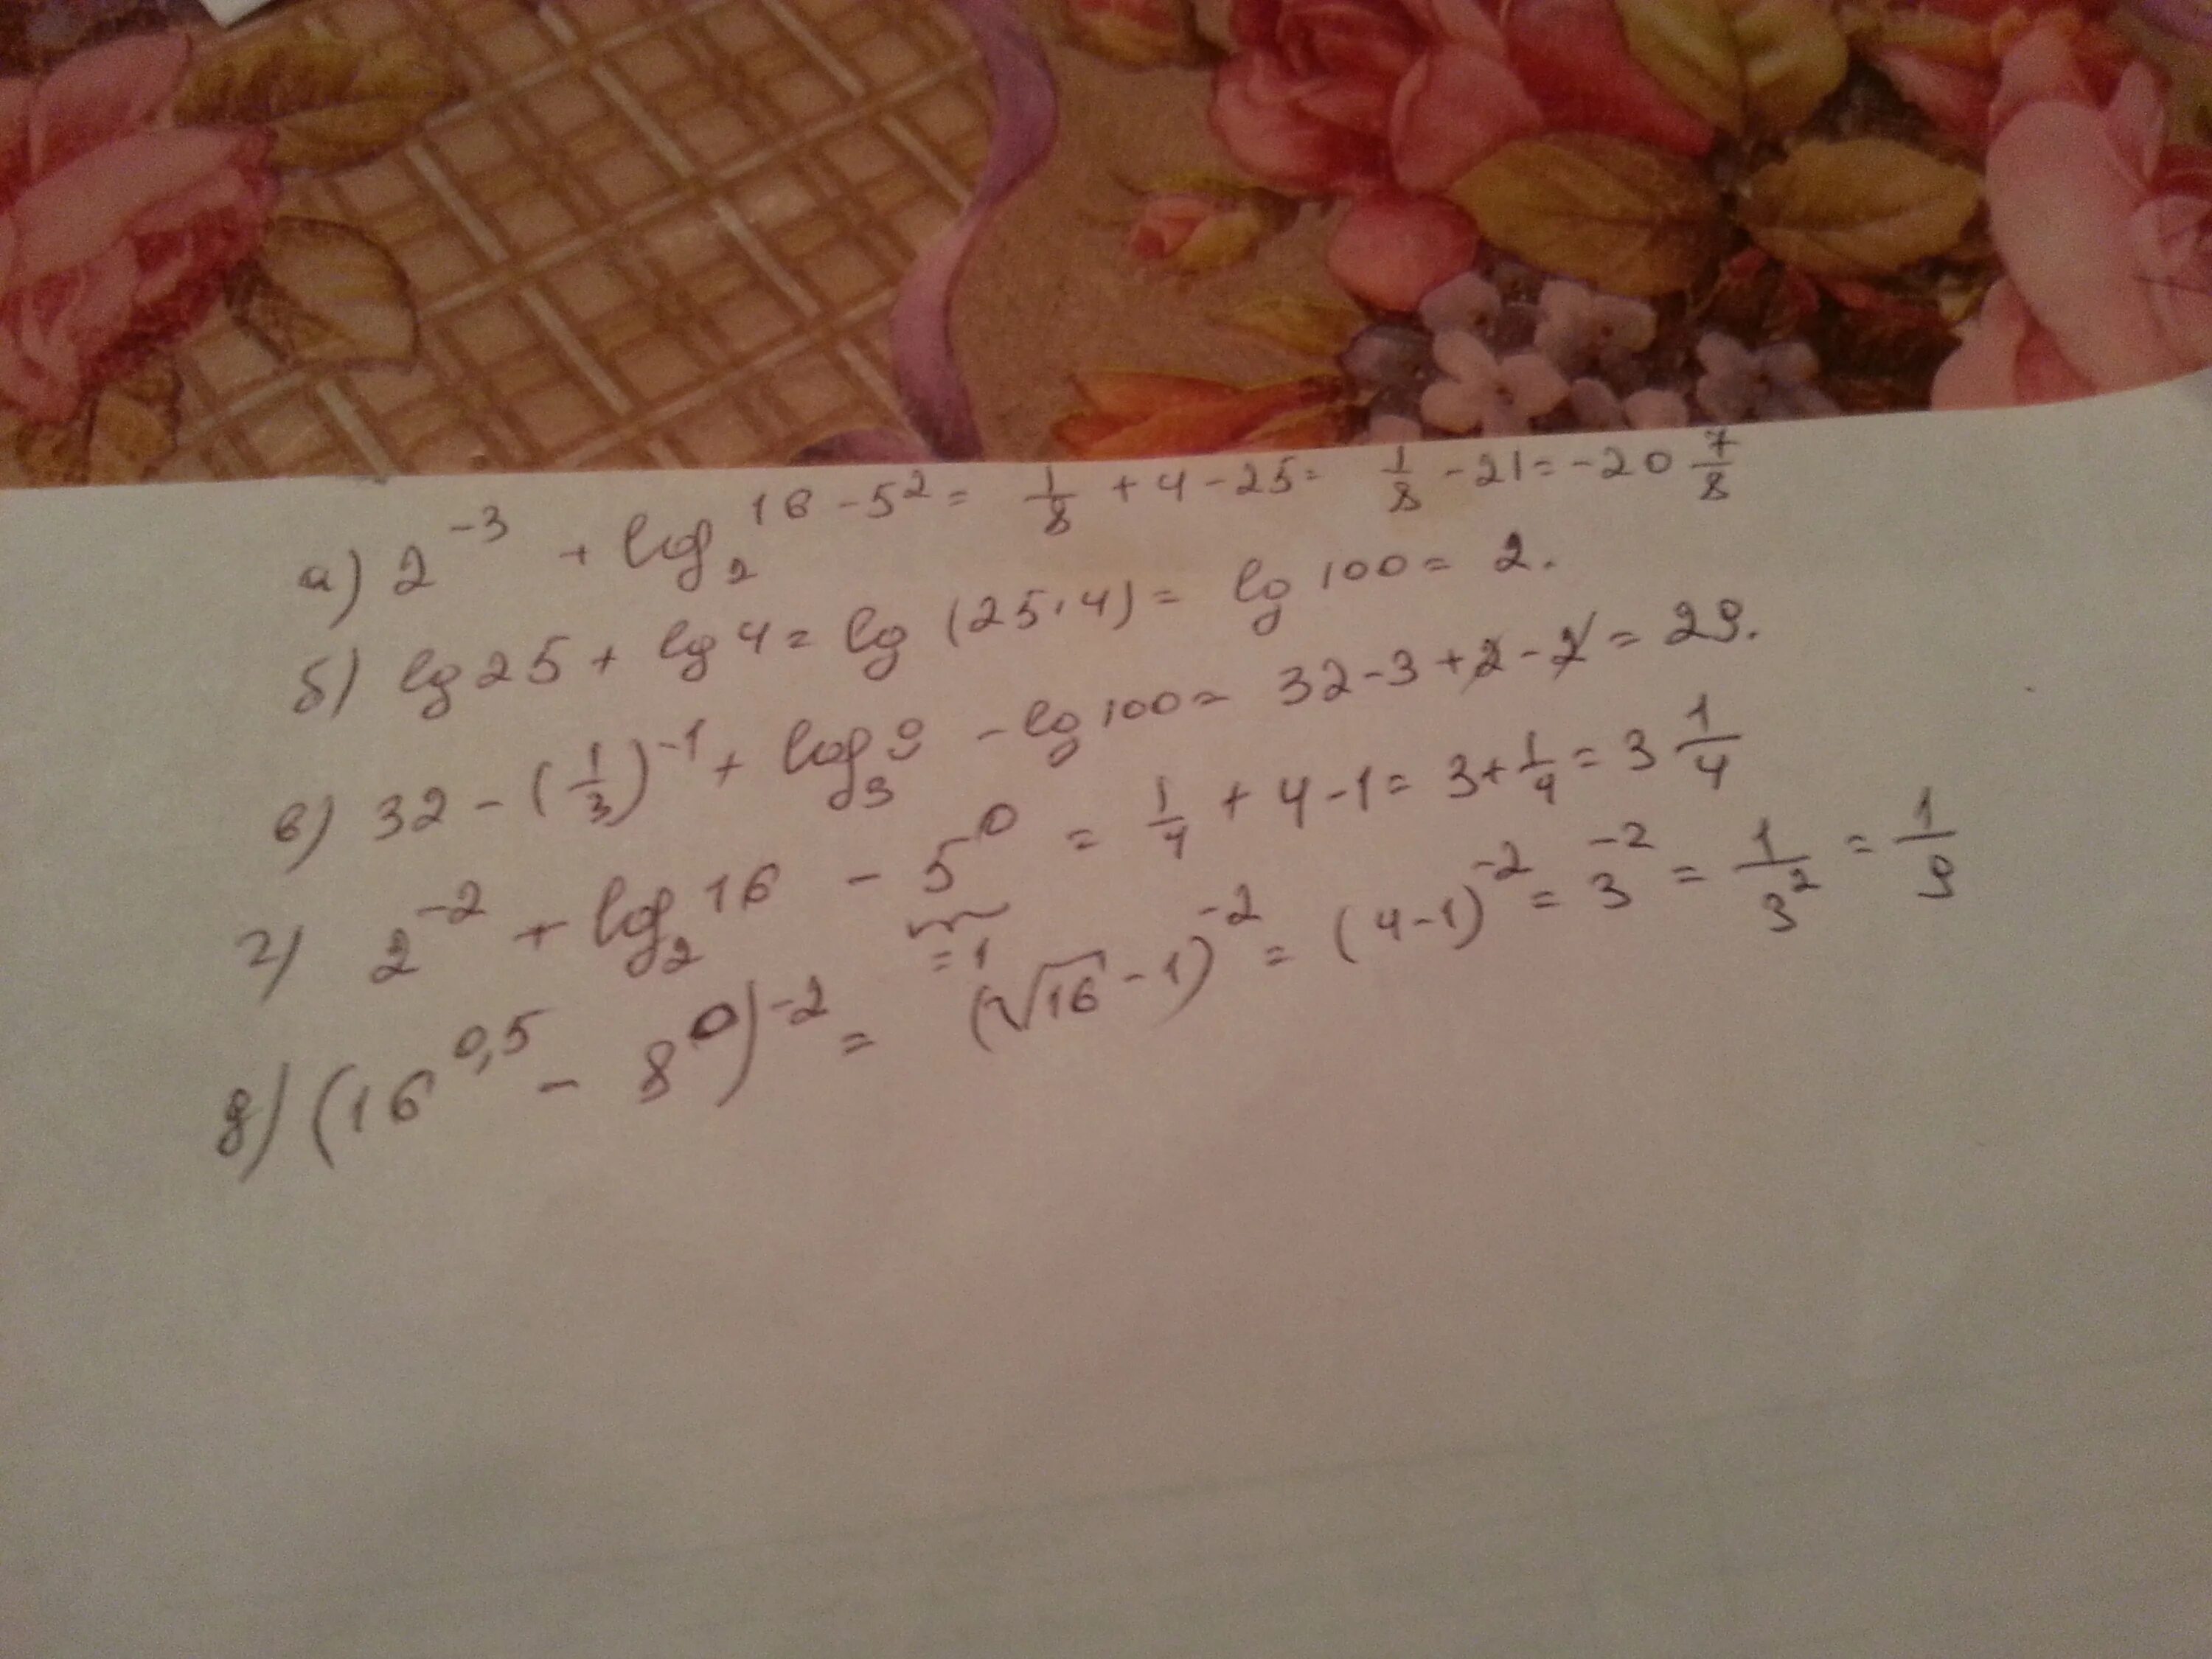 а) 2^-3 + log_2 16 - 5^2 = 1/8 + 4 - 25 = 1/8 - 21 = -20 7/8
б) lg 25 + lg 4 = lg (25·4) = lg 100 = 2.
в) 32 - (1/3)^-1 + log_3 9 - lg 100 = 32 - 3 + 2 - 2 = 29.
г) 2^-2 + log_2 16 - 5^0 = 1/4 + 4 - 1 = 3 + 1/4 = 3 1/4
= 1
д) (16^0,5 - 8^0)^-2 = (√16 - 1)^-2 = (4 - 1)^-2 = 3^-2 = 1/3^2 = 1/9